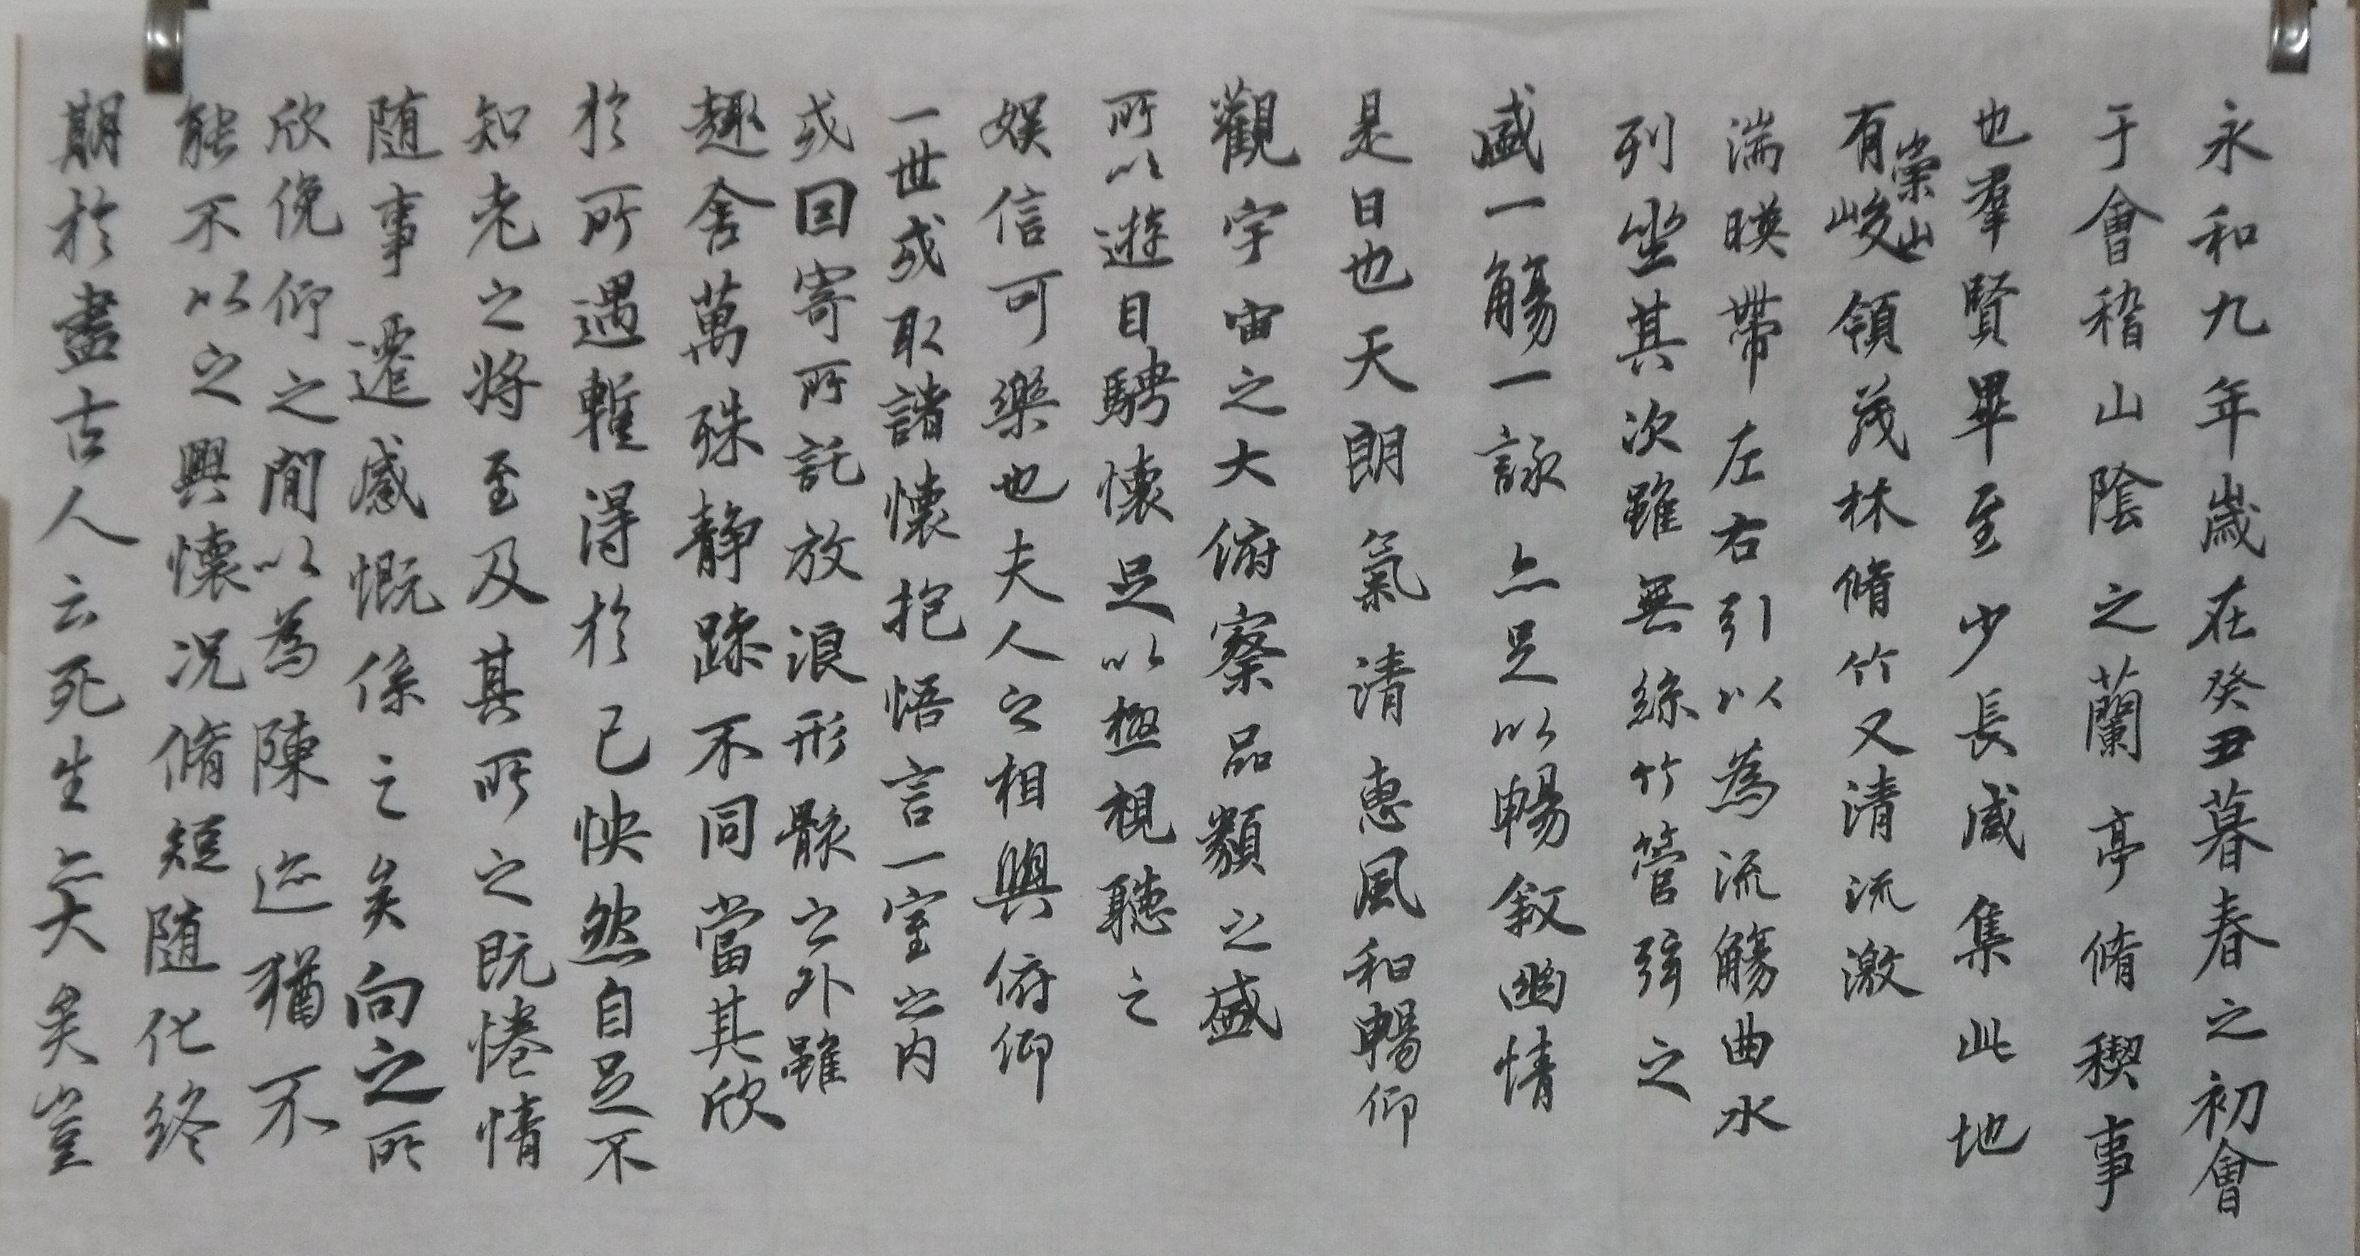 永和九年歲在癸丑暮春之初會
于會稽山陰之蘭亭脩稧事
也羣賢畢至少長咸集此地
有崇山峻領茂林脩竹又清流激
湍暎帶左右引以為流觴曲水
列坐其次雖無絲竹管弦之
盛一觴一詠亦足以暢敘幽情
是日也天朗氣清惠風和暢仰
觀宇宙之大俯察品類之盛
所以遊目騁懷足以極視聽之
娛信可樂也夫人之相與俯仰
一世或取諸懷抱悟言一室之內
或因寄所託放浪形骸之外雖
趣舍萬殊靜躁不同當其欣
於所遇蹔得於己怏然自足不
知老之將至及其所之既惓情
隨事遷感慨係之矣向之所
欣俛仰之閒以為陳迹猶不
能不以之興懷況脩短隨化終
期於盡古人云死生亦大矣豈